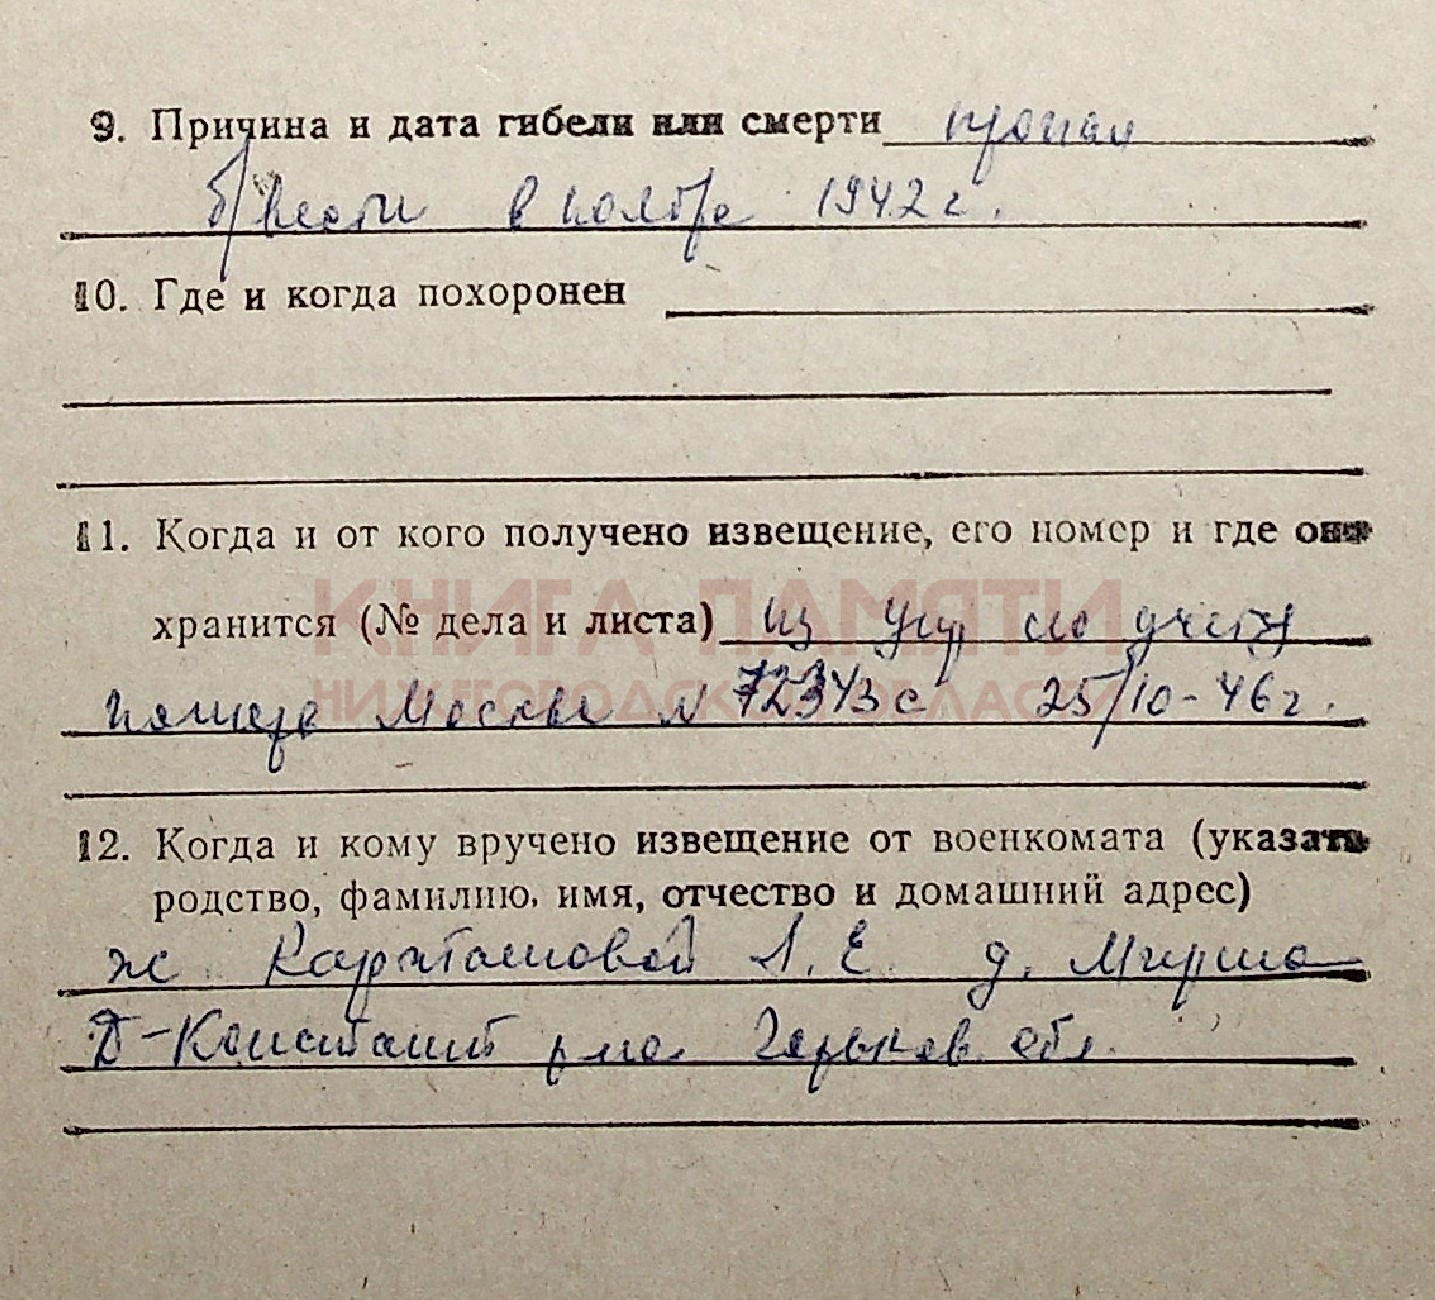 9. Причина и дата гибели или смерти пропал
б/вести в ноябре 1942 г.
10. Где и когда похоронен
11. Когда и от кого получено извещение, его номер и где оно
КНИГА ПАМЯТИ
хранится (№ дела и листа) из Упр по учету
НИЖЕГОРОДСКОЙ ОБЛАСТИ
Москвы № 25/10-46г.
12. Когда и кому вручено извещение от военкомата (указать
родство, фамилию, имя, отчество и домашний адрес)
ж Караташовой А. Е д.
Д-Констант р-на Горьков обл.